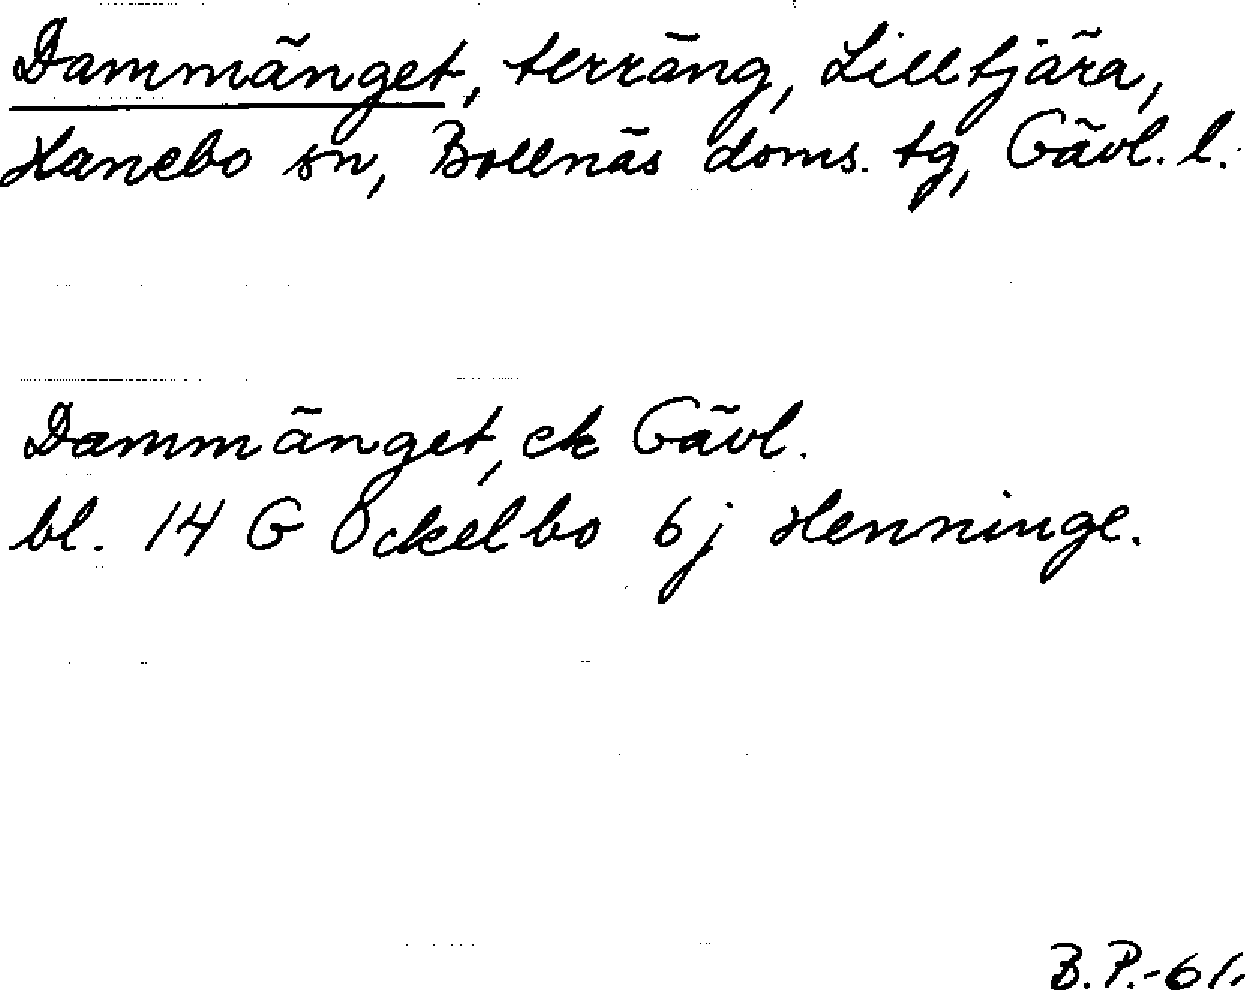 Dammänget, terräng, Lilltjära,
Hanebo sn, Bollnäs doms. tg, Gävl. l.
Dammänget, ek Gävl.
bl. 14 G Ockelbo 6 j Henninge.
B.P.-61.